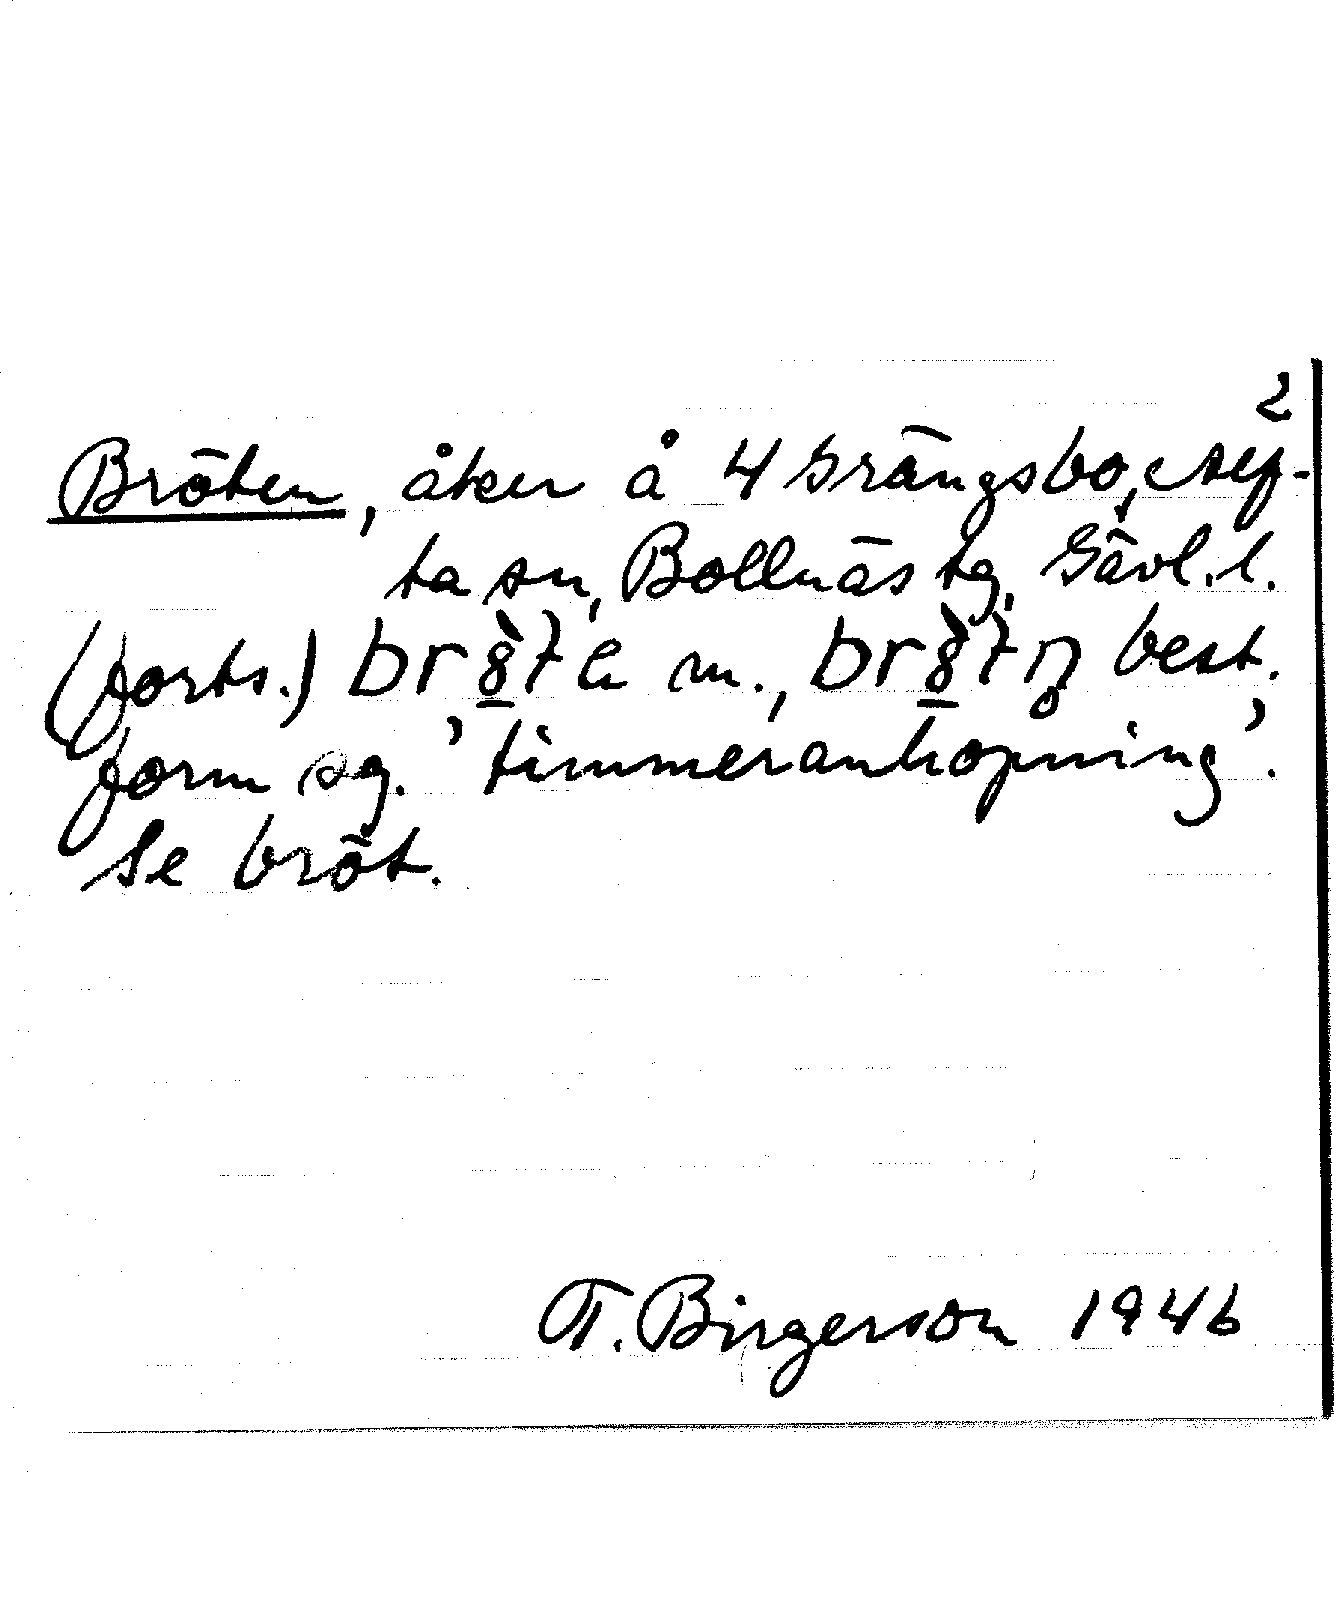 2
Bröten, åker å 4 Grängsbo, Alf-
ta sn, Bollnäs tg, Gävl. l.
(forts.) m., best.
form sg. 'timmeranhopning'.
Se bröt.
T. Birgerson 1946